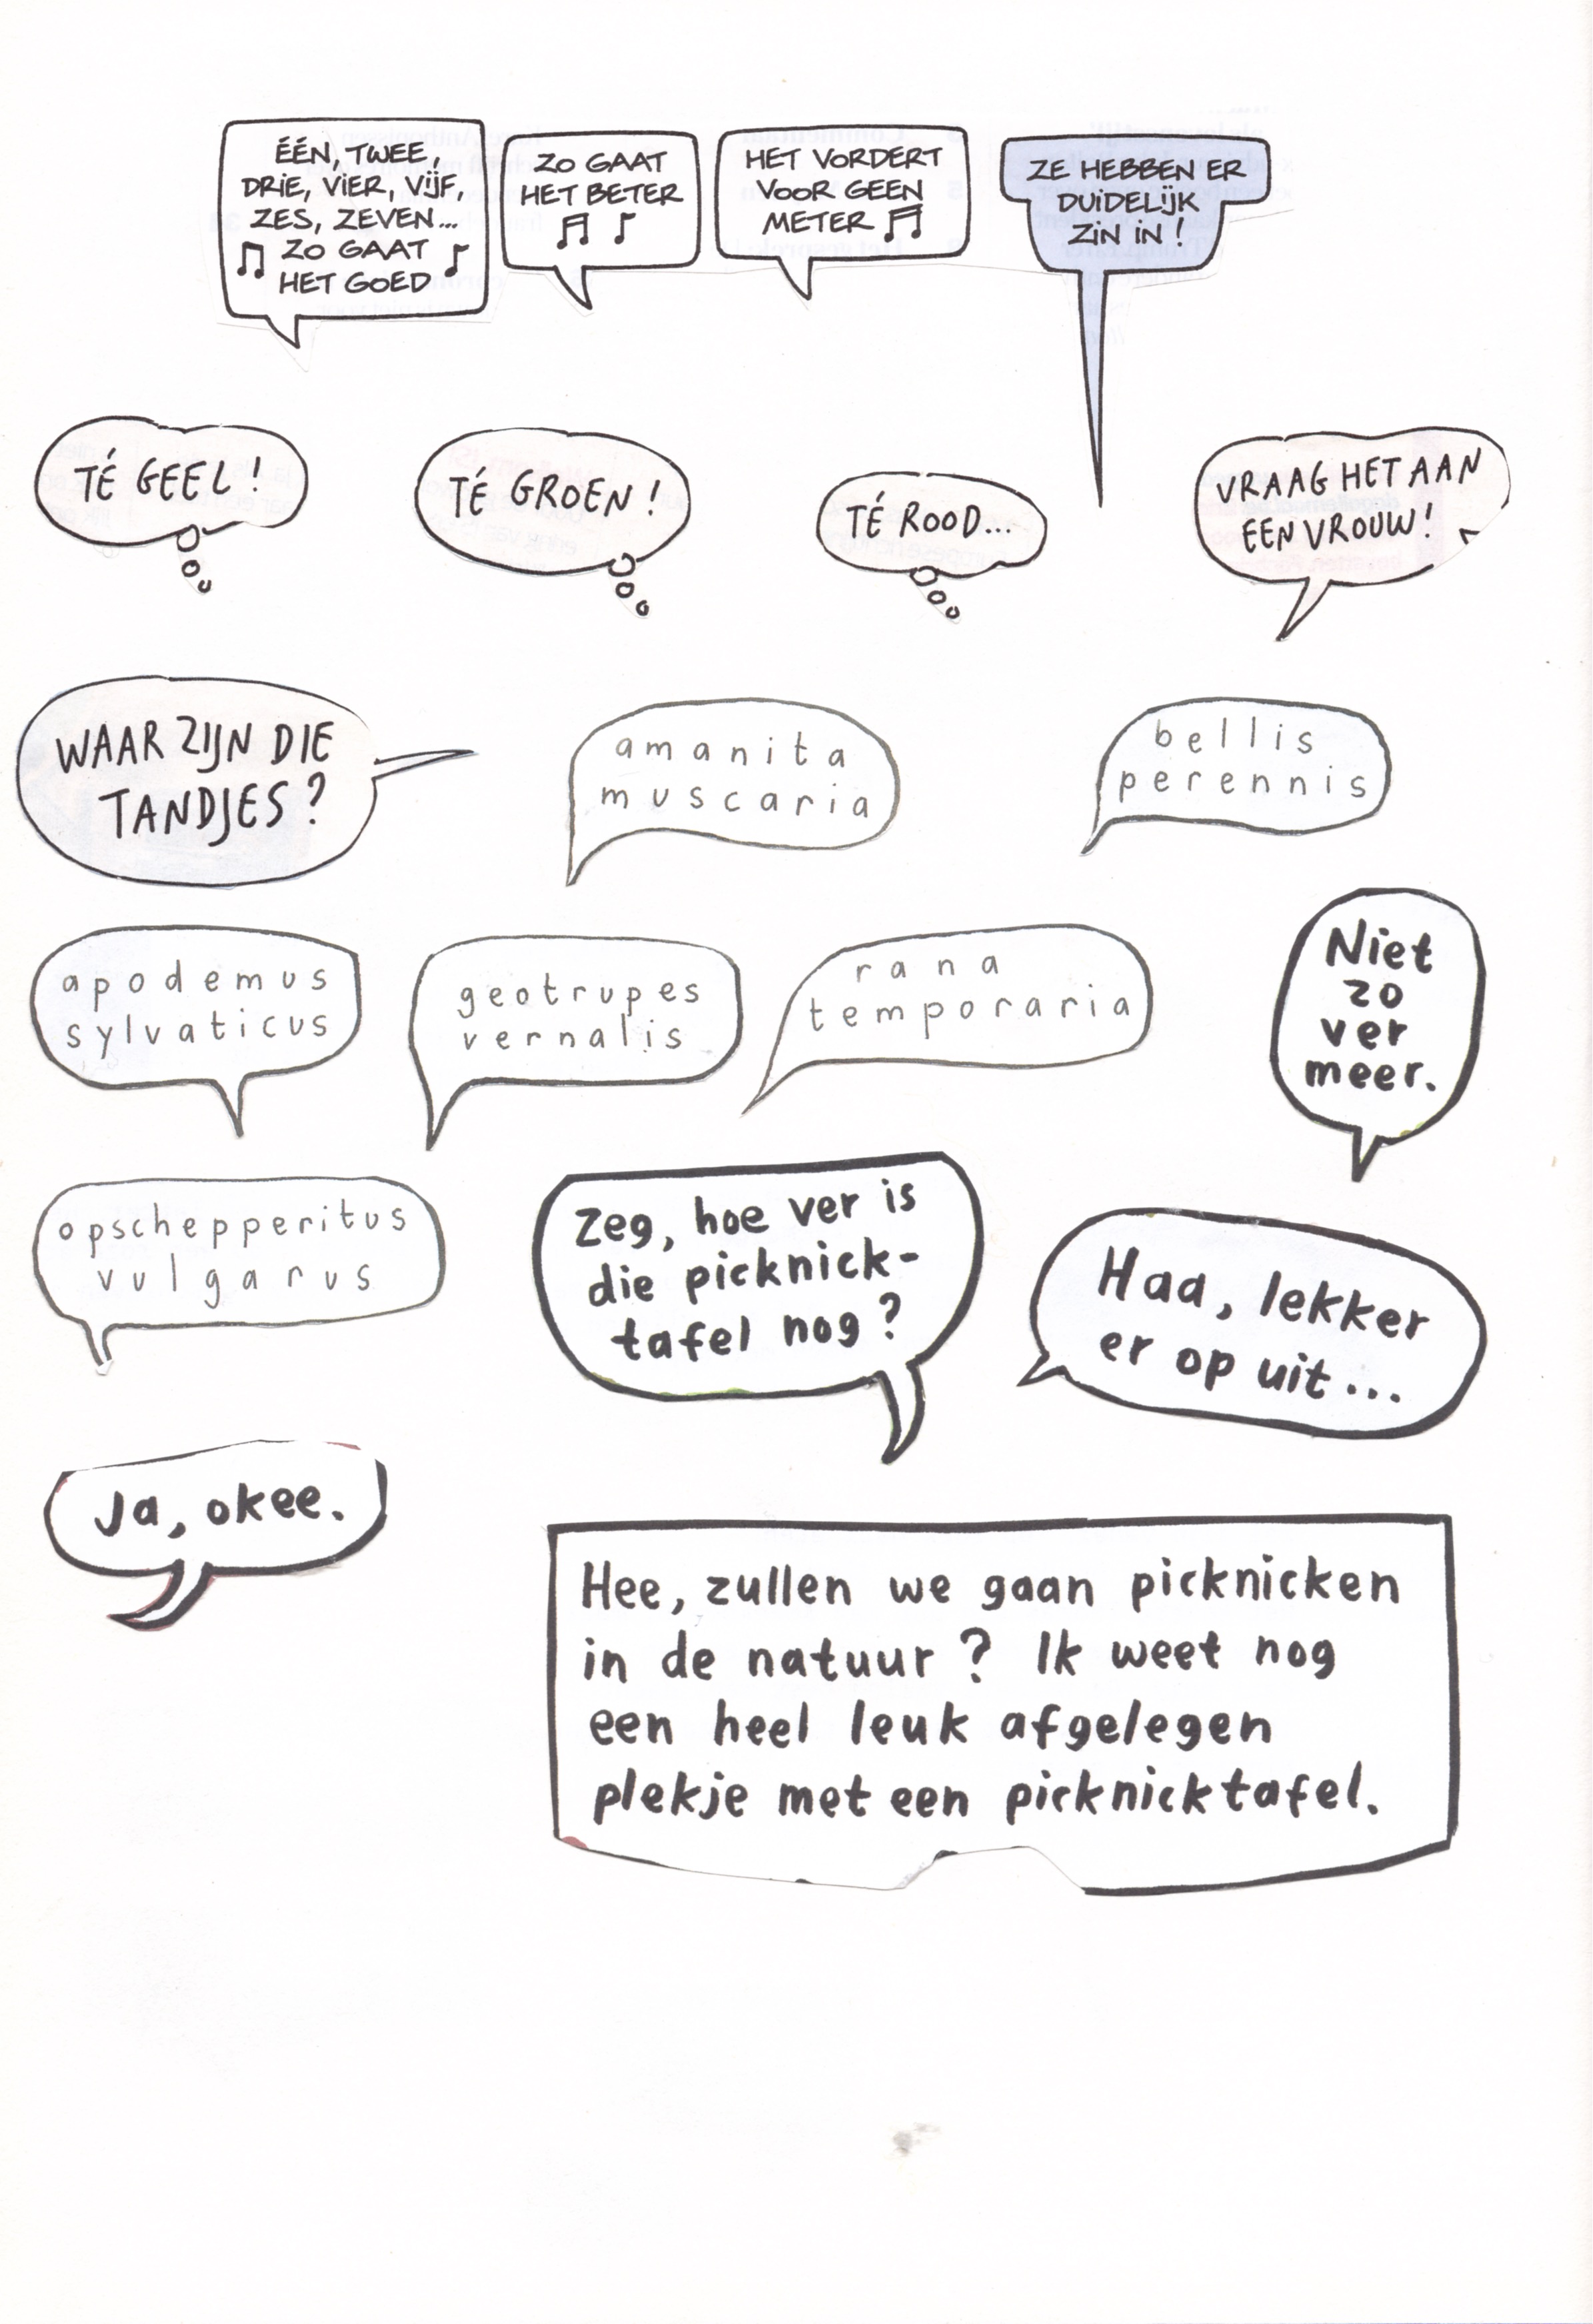 ÉÉN, TWEE,
DRIE, VIER, VIJF,
ZES, ZEVEN...
ZO GAAT
HET GOED
ZO GAAT
HET BETER
HET VORDERT
VOOR GEEN
METER
ZE HEBBEN ER
DUIDELIJK
ZIN IN!
TÉ GEEL!
TÉ GROEN!
TÉ ROOD...
VRAAG HET AAN
EEN VROUW!
WAAR ZIJN DIE
TANDJES?
amanita
muscaria
bellis
perennis
apodemus
sylvaticus
geotrupes
vernalis
rana
temporaria
Niet
zo
ver
meer.
opschepperitus
vulgarus
Zeg, hoe ver is
die picknick-
tafel nog?
Haa, lekker
er op uit...
Ja, okee.
Hee, zullen we gaan picknicken
in de natuur? Ik weet nog
een heel leuk afgelegen
plekje met een picknicktafel.